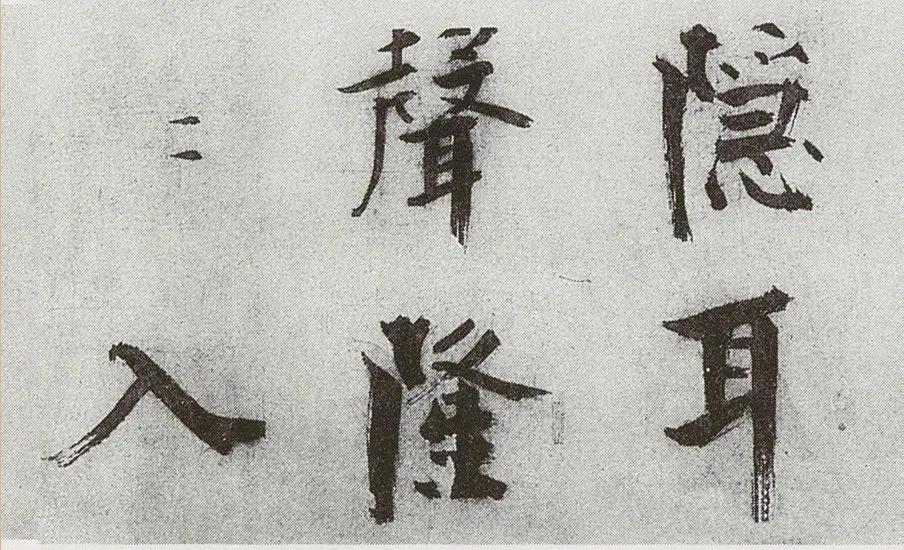 隱耳
聲隆
〻入